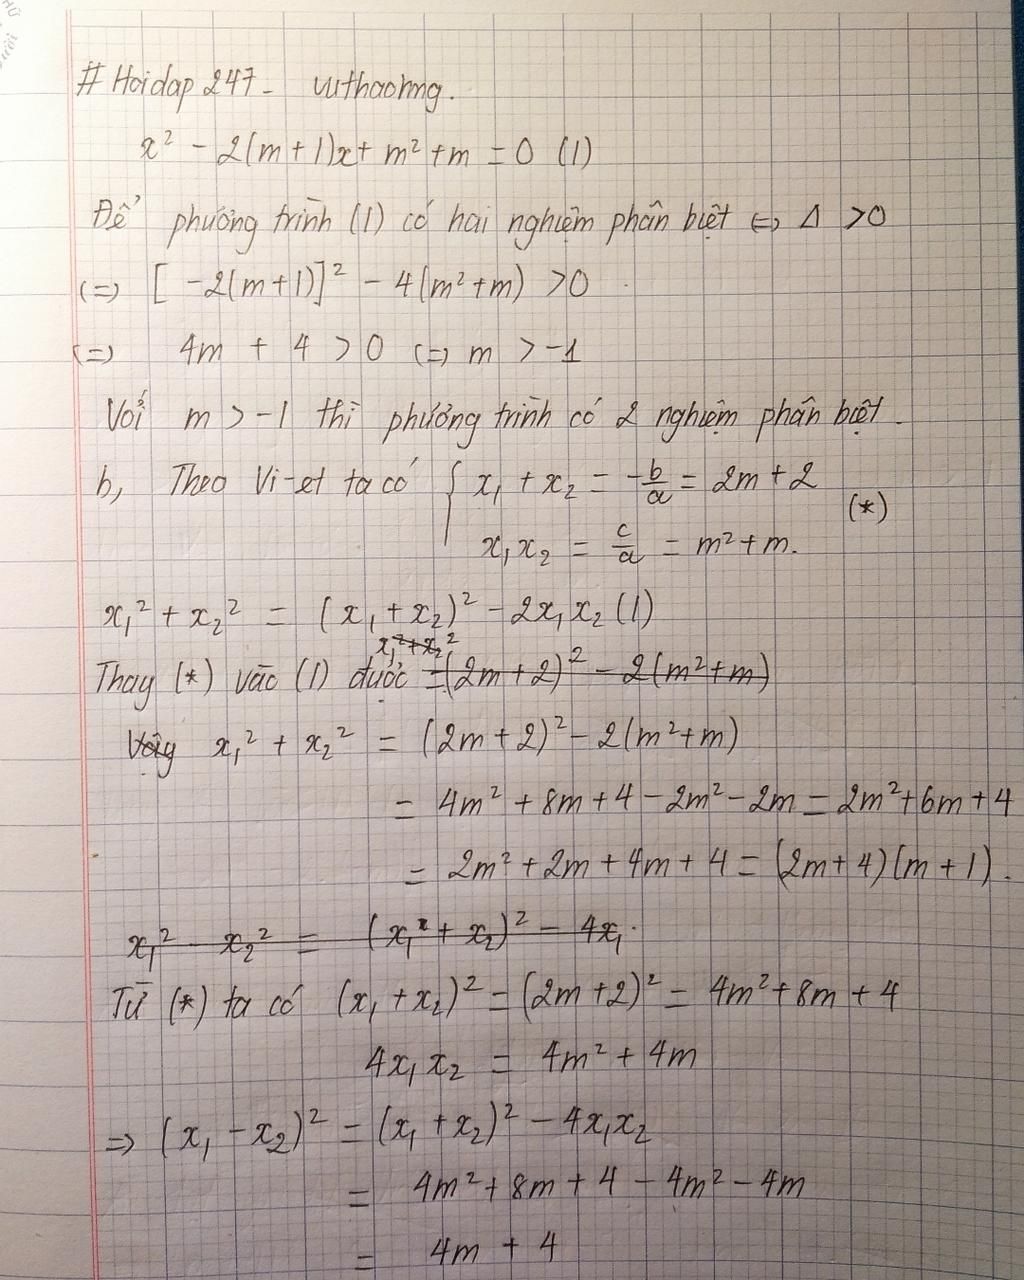 # Hoidap 247 - vuthaohng.
x² - 2(m+1)x + m² + m = 0 (1)
Để phương trình (1) có hai nghiệm phân biệt <=> Δ > 0
<=> [-2(m+1)]² - 4(m²+m) > 0
<=> 4m + 4 > 0 <=> m > -1
Với m > -1 thì phương trình có 2 nghiệm phân biệt.
b, Theo Vi-et ta có { x₁ + x₂ = -b/a = 2m + 2
(*)
x₁x₂ = c/a = m² + m.
x₁² + x₂² = (x₁ + x₂)² - 2x₁x₂ (1)
x₁² + x₂²
Thay (*) vào (1) được = (2m+2)² - 2(m²+m)
Vậy x₁² + x₂² = (2m+2)² - 2(m²+m)
= 4m² + 8m + 4 - 2m² - 2m = 2m² + 6m + 4
= 2m² + 2m + 4m + 4 = (2m+4)(m+1).
x₁² - x₂² = (x₁² + x₂)² - 4x₁.
Từ (*) ta có (x₁ + x₂)² = (2m+2)² = 4m² + 8m + 4
4x₁x₂ = 4m² + 4m
=> (x₁ - x₂)² = (x₁ + x₂)² - 4x₁x₂
= 4m² + 8m + 4 - 4m² - 4m
= 4m + 4